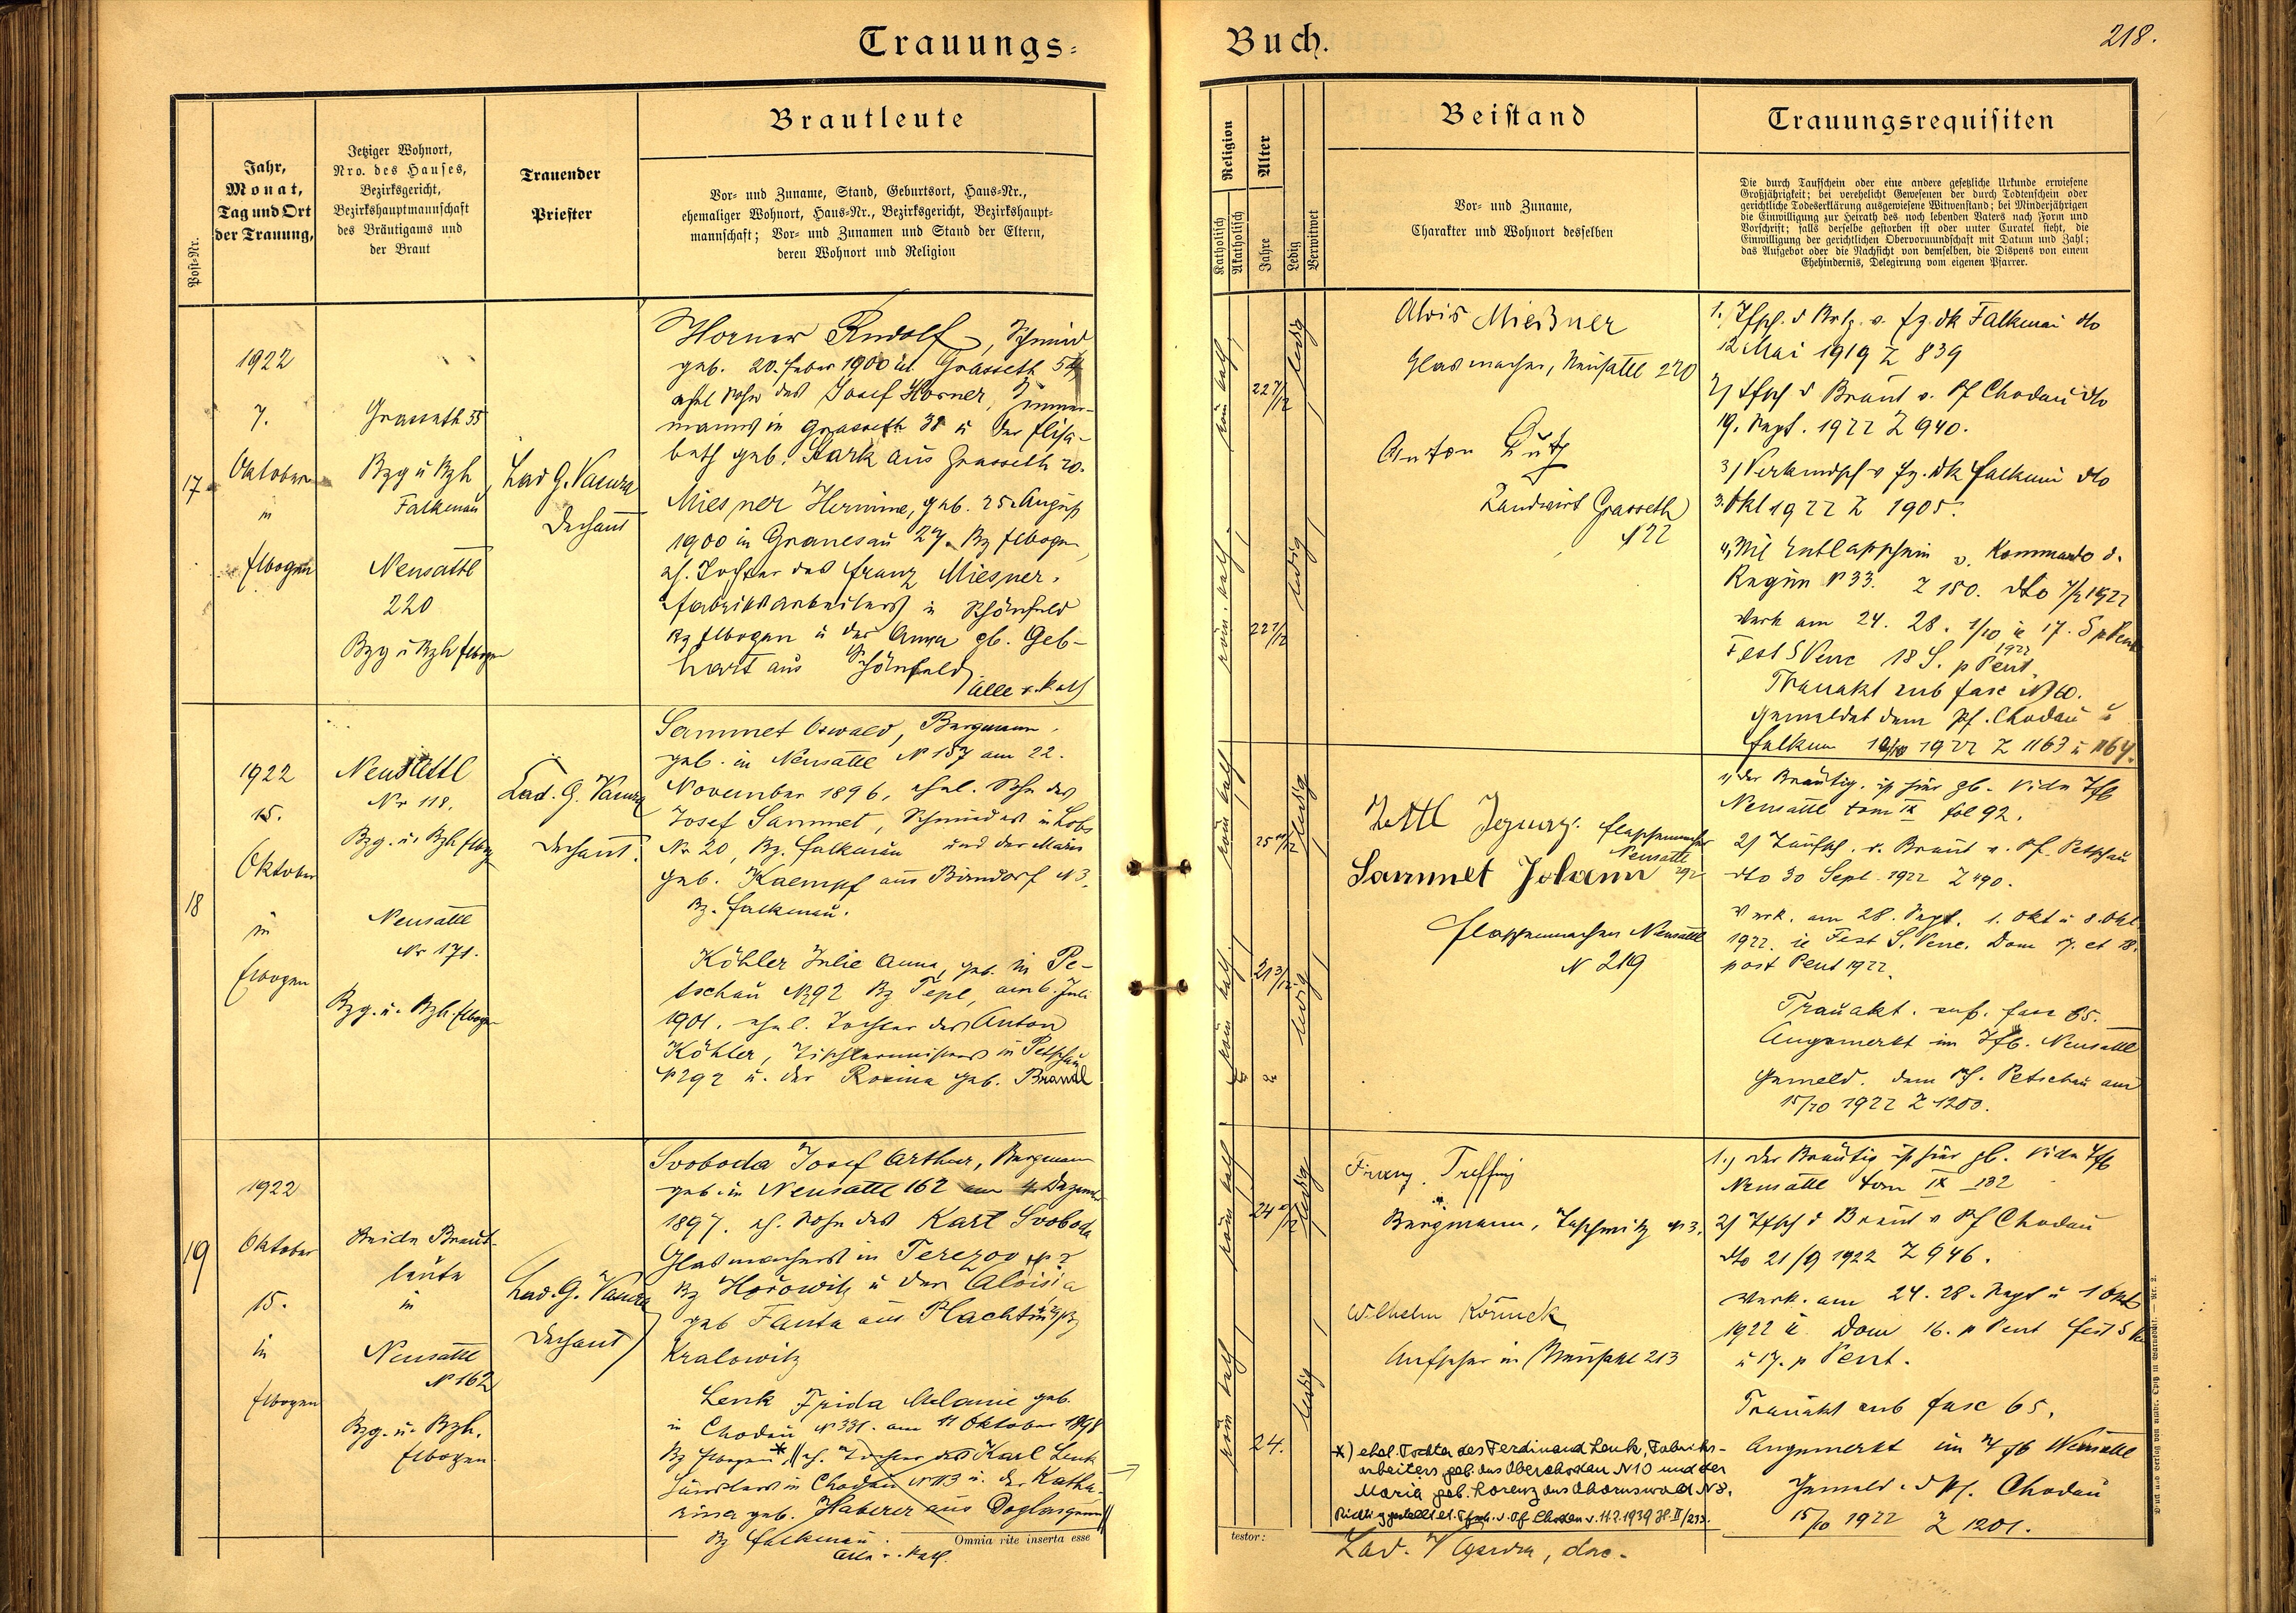 Trauungs=
Buch.
218.
Post-Nr.
Jahr,
Monat,
Tag und Ort
der Trauung,
Jetziger Wohnort,
Nro. des Hauses,
Bezirksgericht,
Bezirkshauptmannschaft
des Bräutigams und
der Braut
Trauender
Priester
Brautleute
Vor- und Zuname, Stand, Geburtsort, Haus-Nr.,
ehemaliger Wohnort, Haus-Nr., Bezirksgericht, Bezirkshaupt-
mannschaft; Vor- und Zunamen und Stand der Eltern,
deren Wohnort und Religion
Religion
Katholisch
Akatholisch
Alter
Jahre
Ledig
Verwitwet
Beistand
Vor- und Zuname,
Charakter und Wohnort desselben
Trauungsrequisiten
Die durch Taufschein oder eine andere gesetzliche Urkunde erwiesene
Großjährigkeit; bei verehelicht Gewesenen der durch Todtenschein oder
gerichtliche Todeserklärung ausgewiesene Witwenstand; bei Minderjährigen
die Einwilligung zur Heirath des noch lebenden Vaters nach Form und
Vorschrift; falls derselbe gestorben ist oder unter Curatel steht, die
Einwilligung der gerichtlichen Obervormundschaft mit Datum und Zahl;
das Aufgebot oder die Nachsicht von demselben, die Dispens von einem
Ehehindernis, Delegirung vom eigenen Pfarrer.
17
1922
7.
Oktober
in
Elbogen
Grasseth 35
Bzg u Bzh
Falkenau
Neusattl
220
Bzg u Bzh Elbogen
Lad G. Vacura
Dechant
Horner Rudolf, Schmied
geb. 20. Feber 1900 in Grasseth 54
ehel Sohn des Josef Horner, Zimmer-
manns in Grasseth 38 u der Elisa-
beth geb. Stark aus Grasseth 20.
Miesner Hermine, geb. 25. August
1900 in Granesau 27. Bz Elbogen
eh. Tochter des Franz Miesner,
Fabriksarbeiters in Schönfeld
Bz Elbogen u der Anna gb. Geb-
hart aus Schönfeld
alle r. kath
röm kath
22 7/12
ledig
röm. kath
22 1/12
ledig
Alois Mießner
Glasmacher, Neusattl 220
Anton Lutz
Landwirt Grasseth
N 22
1. Tfsch. d Brtg. v. Ez. dk Falkenau dto
12 Mai 1919 Z 839
2) Tfsch d Braut v. Pf Chodau dto
19. Sept. 1922 Z 940.
3) Verkündsch v Ez. Dk Falkenau dto
3. Okt 1922 Z 1905.
4, Mil Entlasschein v. Kommando d.
Regim N 33. Z 150. dto 7/2 1922
Verk am 24. 28. 1/10 ie 17. S p Pent
Fest S Venc 18 S. p Pent. 1922
Trauakt sub fasc N 60.
Gemeldet dem Pf. Chodau u
Falkenau 10/10 1922 Z 1163 u 1164.
18
1922
15.
Oktober
in
Elbogen
Neusattl
Nr 118.
Bzg. u. Bzh Elbog
Neusattl
Nr 171.
Bzg. u. Bzh. Elbogen
Lad. G. Vacura
Dechant.
Sammet Oswald, Bergmann,
geb. in Neusattl N 157 am 22.
November 1896, ehel. Sohn des
Josef Sammet, Schmiedes in Lobs
Nr 20, Bz. Falkenau und der Maria
geb. Kaempf aus Birndorf N 3,
Bz. Falkenau.
Köhler Julie Anna, geb. in Pe-
tschau N 292 Bz Tepl, am 6. Juli
1901. ehel. Tochter des Anton
Köhler, Tischlermeisters in Petschau
N 292 u. der Rosina geb. Brandl
röm kath
ledig
röm kath.
21 3/12
ledig
Zettl Ignaz. Flaschenmacher
Neusattl
292
Sammet Johann
Flaschenmacher Neusattl
N 219
1, der Bräutig. ist hier gb. vide Tfb
Neusattl tom IX fol 92.
2) Taufsch. d. Braut v. Pf. Petschau
dto 30 Sept. 1922 Z 490.
Verk. am 28. Sept. 1. Okt u 8. Okt
1922. ie Fest S. Venc. Dom 17. et 18.
post Pent 1922.
Trauakt. sub. fasc 65.
Angemerkt im Tfb. Neusattl
Gemeld. dem Pf. Petschau am
15/10 1922 Z 1200.
19
1922
Oktober
15.
in
Elbogen
Beide Braut-
leute
in
Neusattl
N 162
Bzg. u. Bzh.
Elbogen
Lad. G. Vacura
Dechant
Svoboda Josef Arthur, Bergmann
geb. in Neusattl 162 am 4. Dezember
1897. eh. Sohn des Karl Svoboda
Glasmachers in Terezov N 2
Bz Hořowitz u der Aloisia
geb Fanta aus Plachtin Bz
Kralowitz
Lenk Frida Melanie geb.
in Chodau N 331. am 11 Oktober 1898
Bz Elbogen *) eh. Tochter des Karl Lenk
in Chodau N 113 u. der Katha-
rina geb. Haberer aus Doglasgrün
Bz Falkenau.
alle r. kath.
Omnia rite inserta esse
röm kath
ledig
röm kath
24.
ledig
Franz
Bergmann, Taschwitz N 3.
Wilhelm
Aufseher in Neusattl 213
*) ehel. Tochter des Ferdinand Lenk, Fabriks-
arbeiters geb. aus Oberchodau N 10 und der
Maria geb. Lorenz aus N 8.
Richtiggestellt lt. Tfsch. v. Pf Chodau v. 11.2.1939
testor:
Lad. Vacura, dec.
1.) Der Bräutig ist hier gb. vide Tfb
Neusattl tom IX 132
2) Tfsch d Braut v Pf Chodau
dto 21/9 1922 Z 946.
Verk. am 24. 28. Sept u 1 Okt
1922 ie. Dom 16. p Pent Fest S V
u 17. p Pent.
Trauakt sub fasc 65.
Angemerkt im Tfb Neusattl
Gemeld. d Pf. Chodau
15/10 1922 Z 1201.